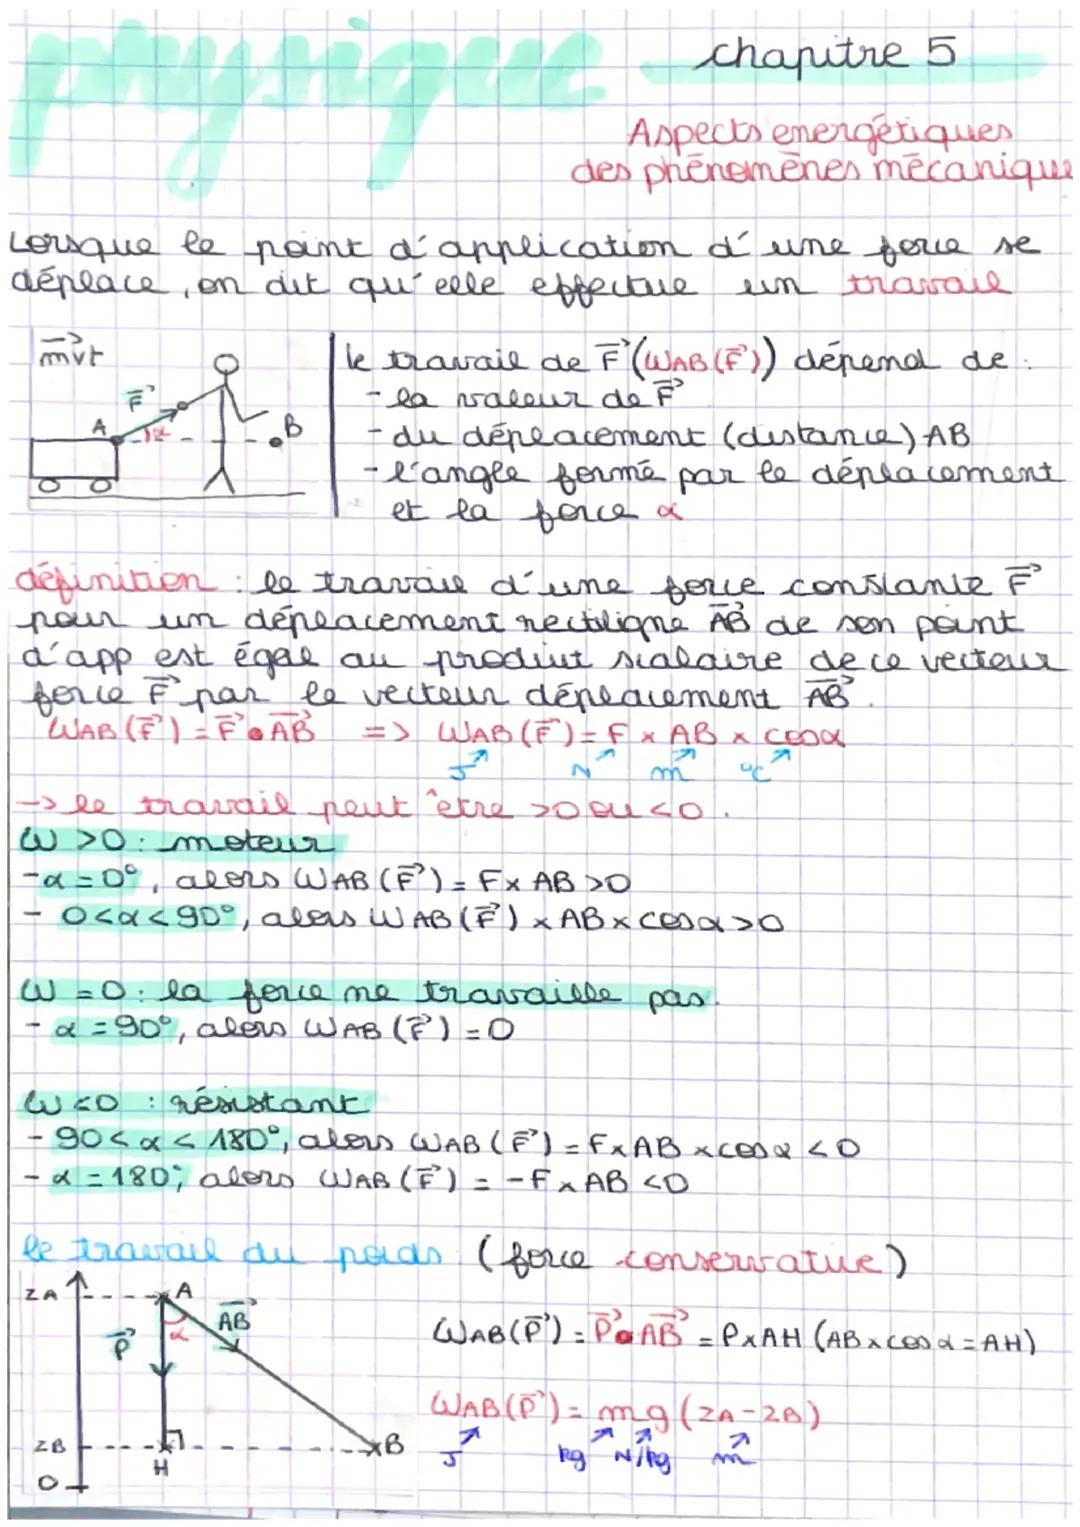 physique
chapitre 5
Aspects énergétiques
des phénomènes mécanique
Lorsque le point d'application d'une force se
déplace, on dit qu'elle effectue un travail
mvt
F
A
α
B
le travail de F (WAB(F)) dépend de :
- la valeur de F
- du déplacement (distance) AB
- l'angle formé par le déplacement
et la force α
définition : le travail d'une force constante F
pour un déplacement rectiligne AB de son point
d'app est égale au produit scalaire de ce vecteur
force F par le vecteur déplacement AB.
WAB(F) = F • AB => WAB(F) = F x AB x cosα
J N m °C
-> le travail peut être >0 ou <0.
W >0 : moteur
- α = 0°, alors WAB(F) = F x AB >0
- 0<α<90°, alors WAB(F) x AB x cosα >0
W = 0 : la force ne travaille pas.
- α = 90°, alors WAB(F) = 0
W <0 : résistant
- 90 < α < 180°, alors WAB(F) = F x AB x cosα <0
- α = 180°, alors WAB(F) = -F x AB <0
le travail du poids (force conservative)
ZA
A
AB
P
α
ZB
H
B
O
WAB(P) = P • AB = P x AH (AB x cosα = AH)
WAB(P) = mg (ZA - ZB)
J kg N/kg m